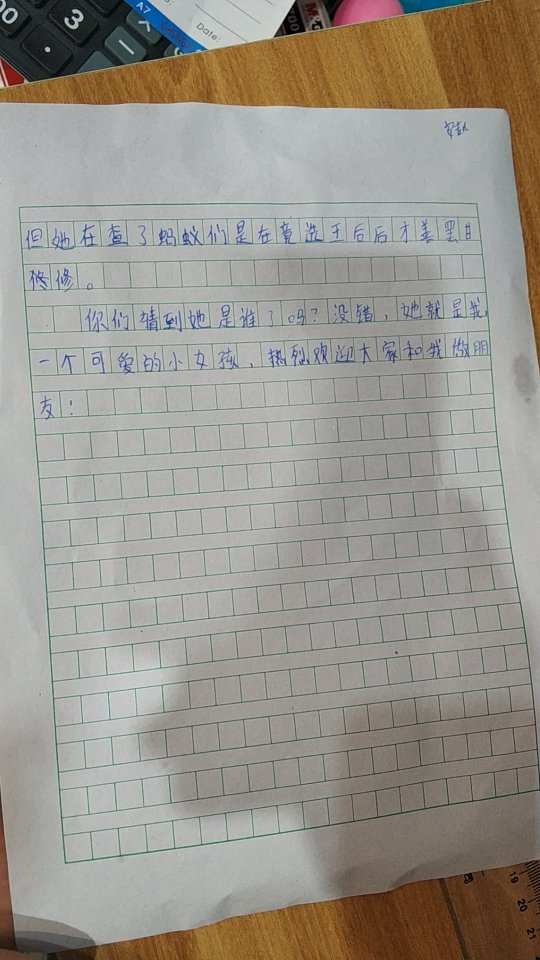 A7
Date:
3
00
但她在查了蚂蚁们是在竟选王后后才善罢甘
休。
你们猜到她是谁了吗?没错,她就是我,
一个可爱的小女孩,热烈欢迎大家和我做朋
友!
19
20
21